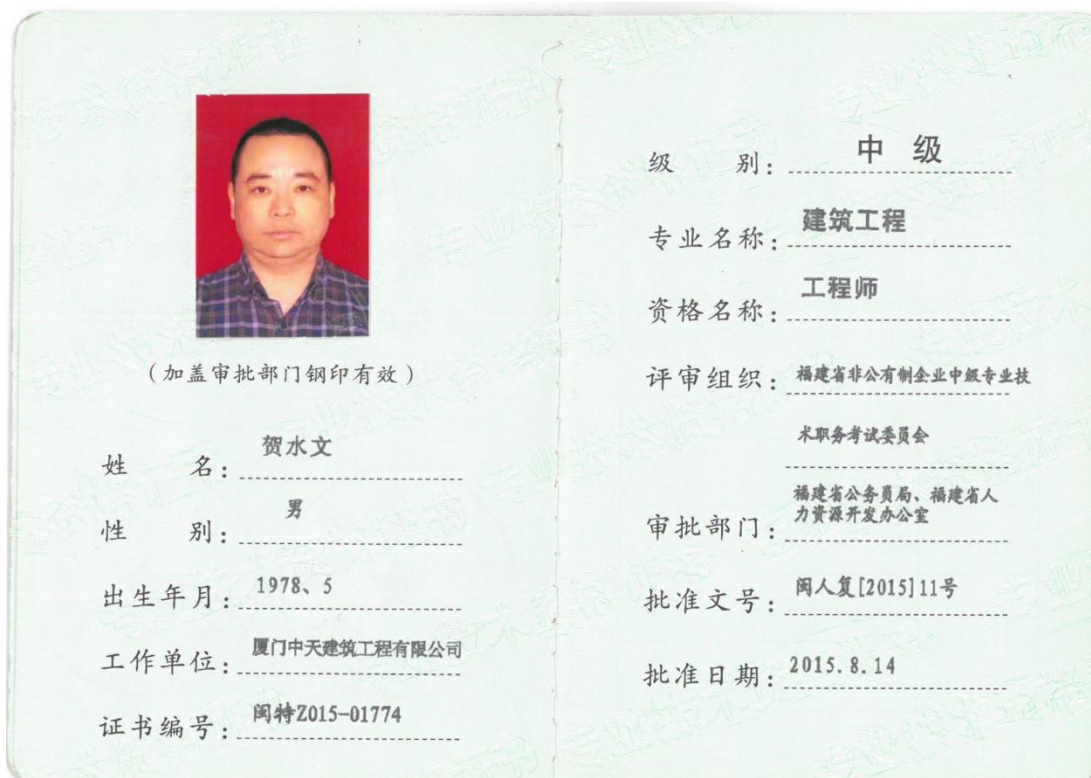 （加盖审批部门钢印有效）
姓 名：贺水文
性 别：男
出生年月：1978、5
工作单位：厦门中天建筑工程有限公司
证书编号：闽特Z015-01774
级 别：中 级
专业名称：建筑工程
资格名称：工程师
评审组织：福建省非公有制企业中级专业技
术职务考试委员会
福建省公务员局、福建省人
审批部门：力资源开发办公室
批准文号：闽人复[2015]11号
批准日期：2015.8.14